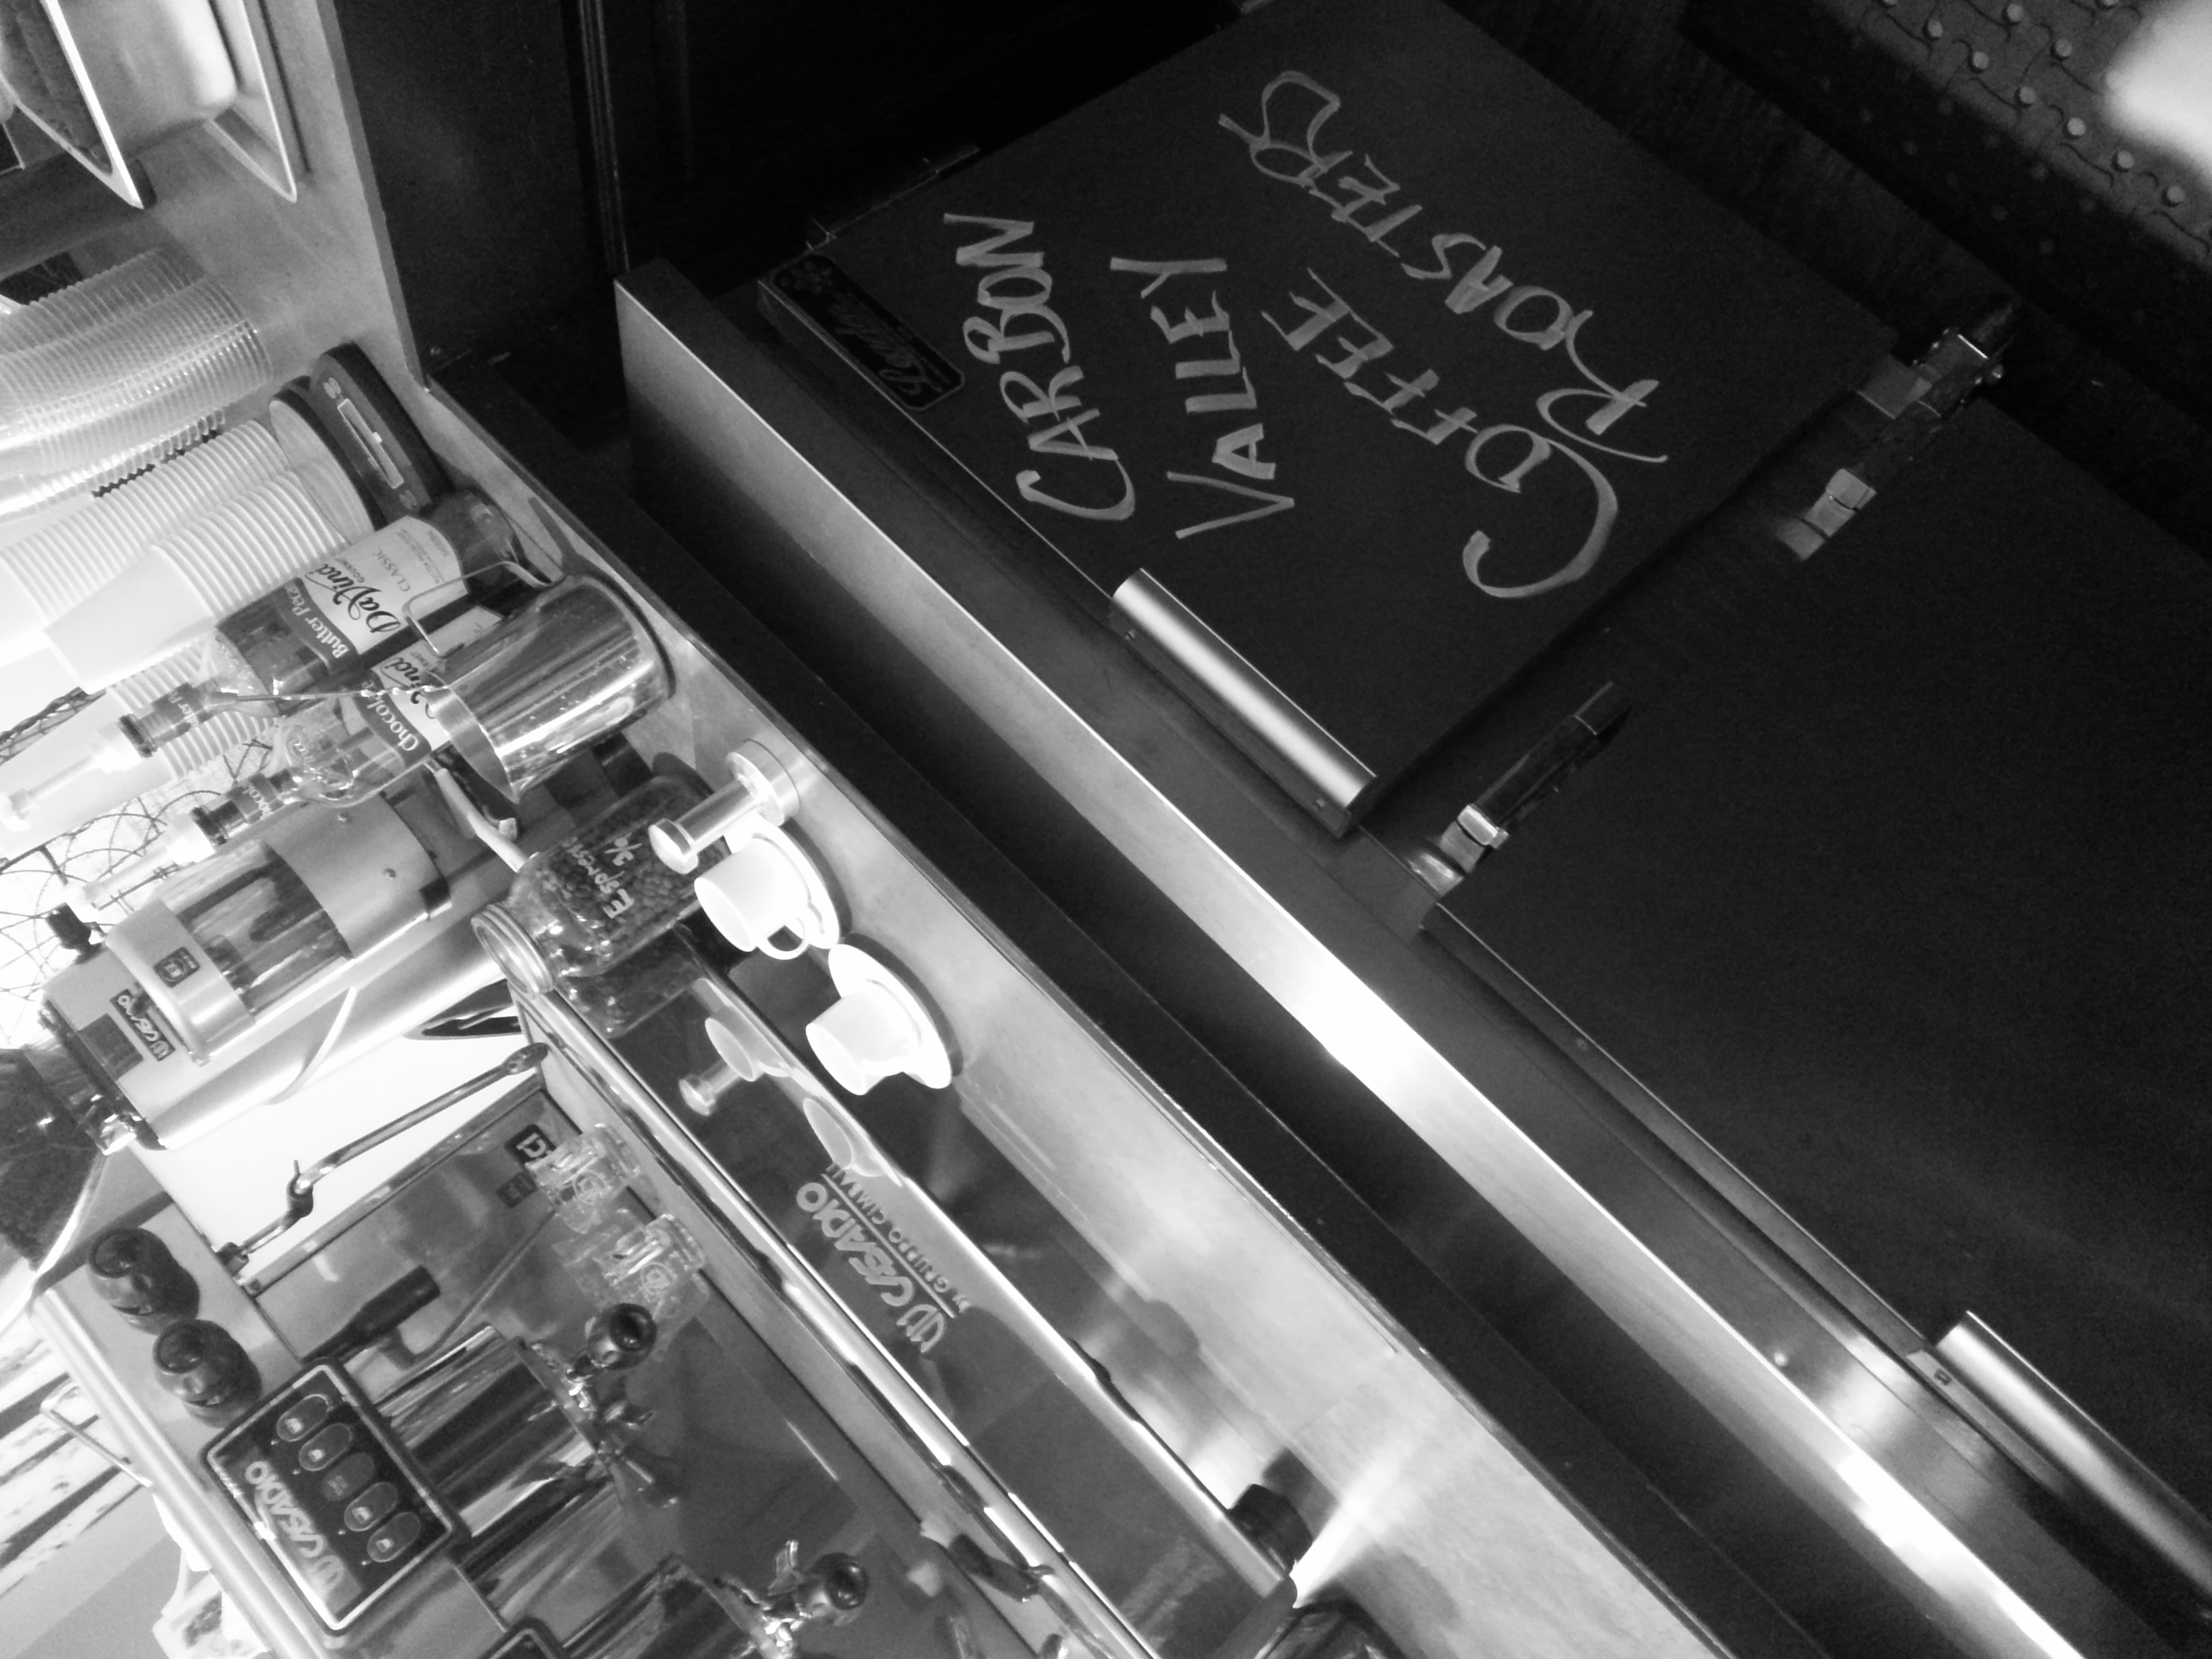 CASADIO
CASADIO
Chocolate
DaVinci
Butter Pecan
DaVinci
GOURMET
CLASSIC
Espresso
3/9
CASADIO
BY GRUPPO CIMBALI
CARBON
VALLEY
COFFEE
ROASTERS